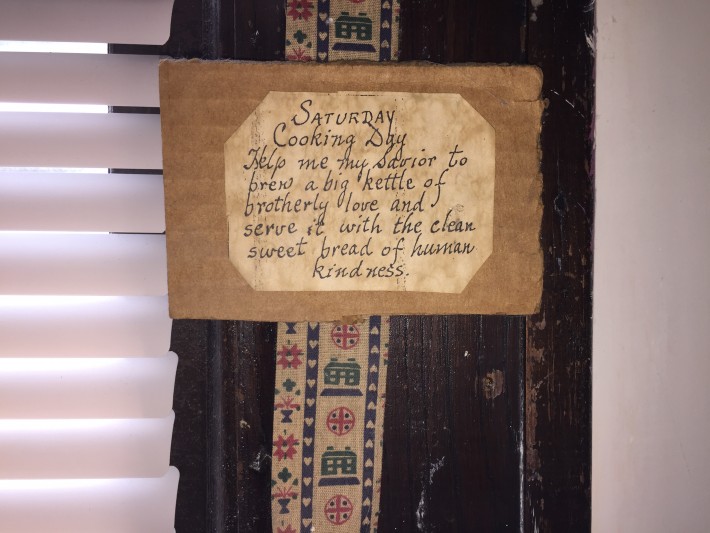 SATURDAY
Cooking Day
Help me my savior to
brew a big kettle of
brotherly love and
serve it with the clean
sweet bread of human
kindness.